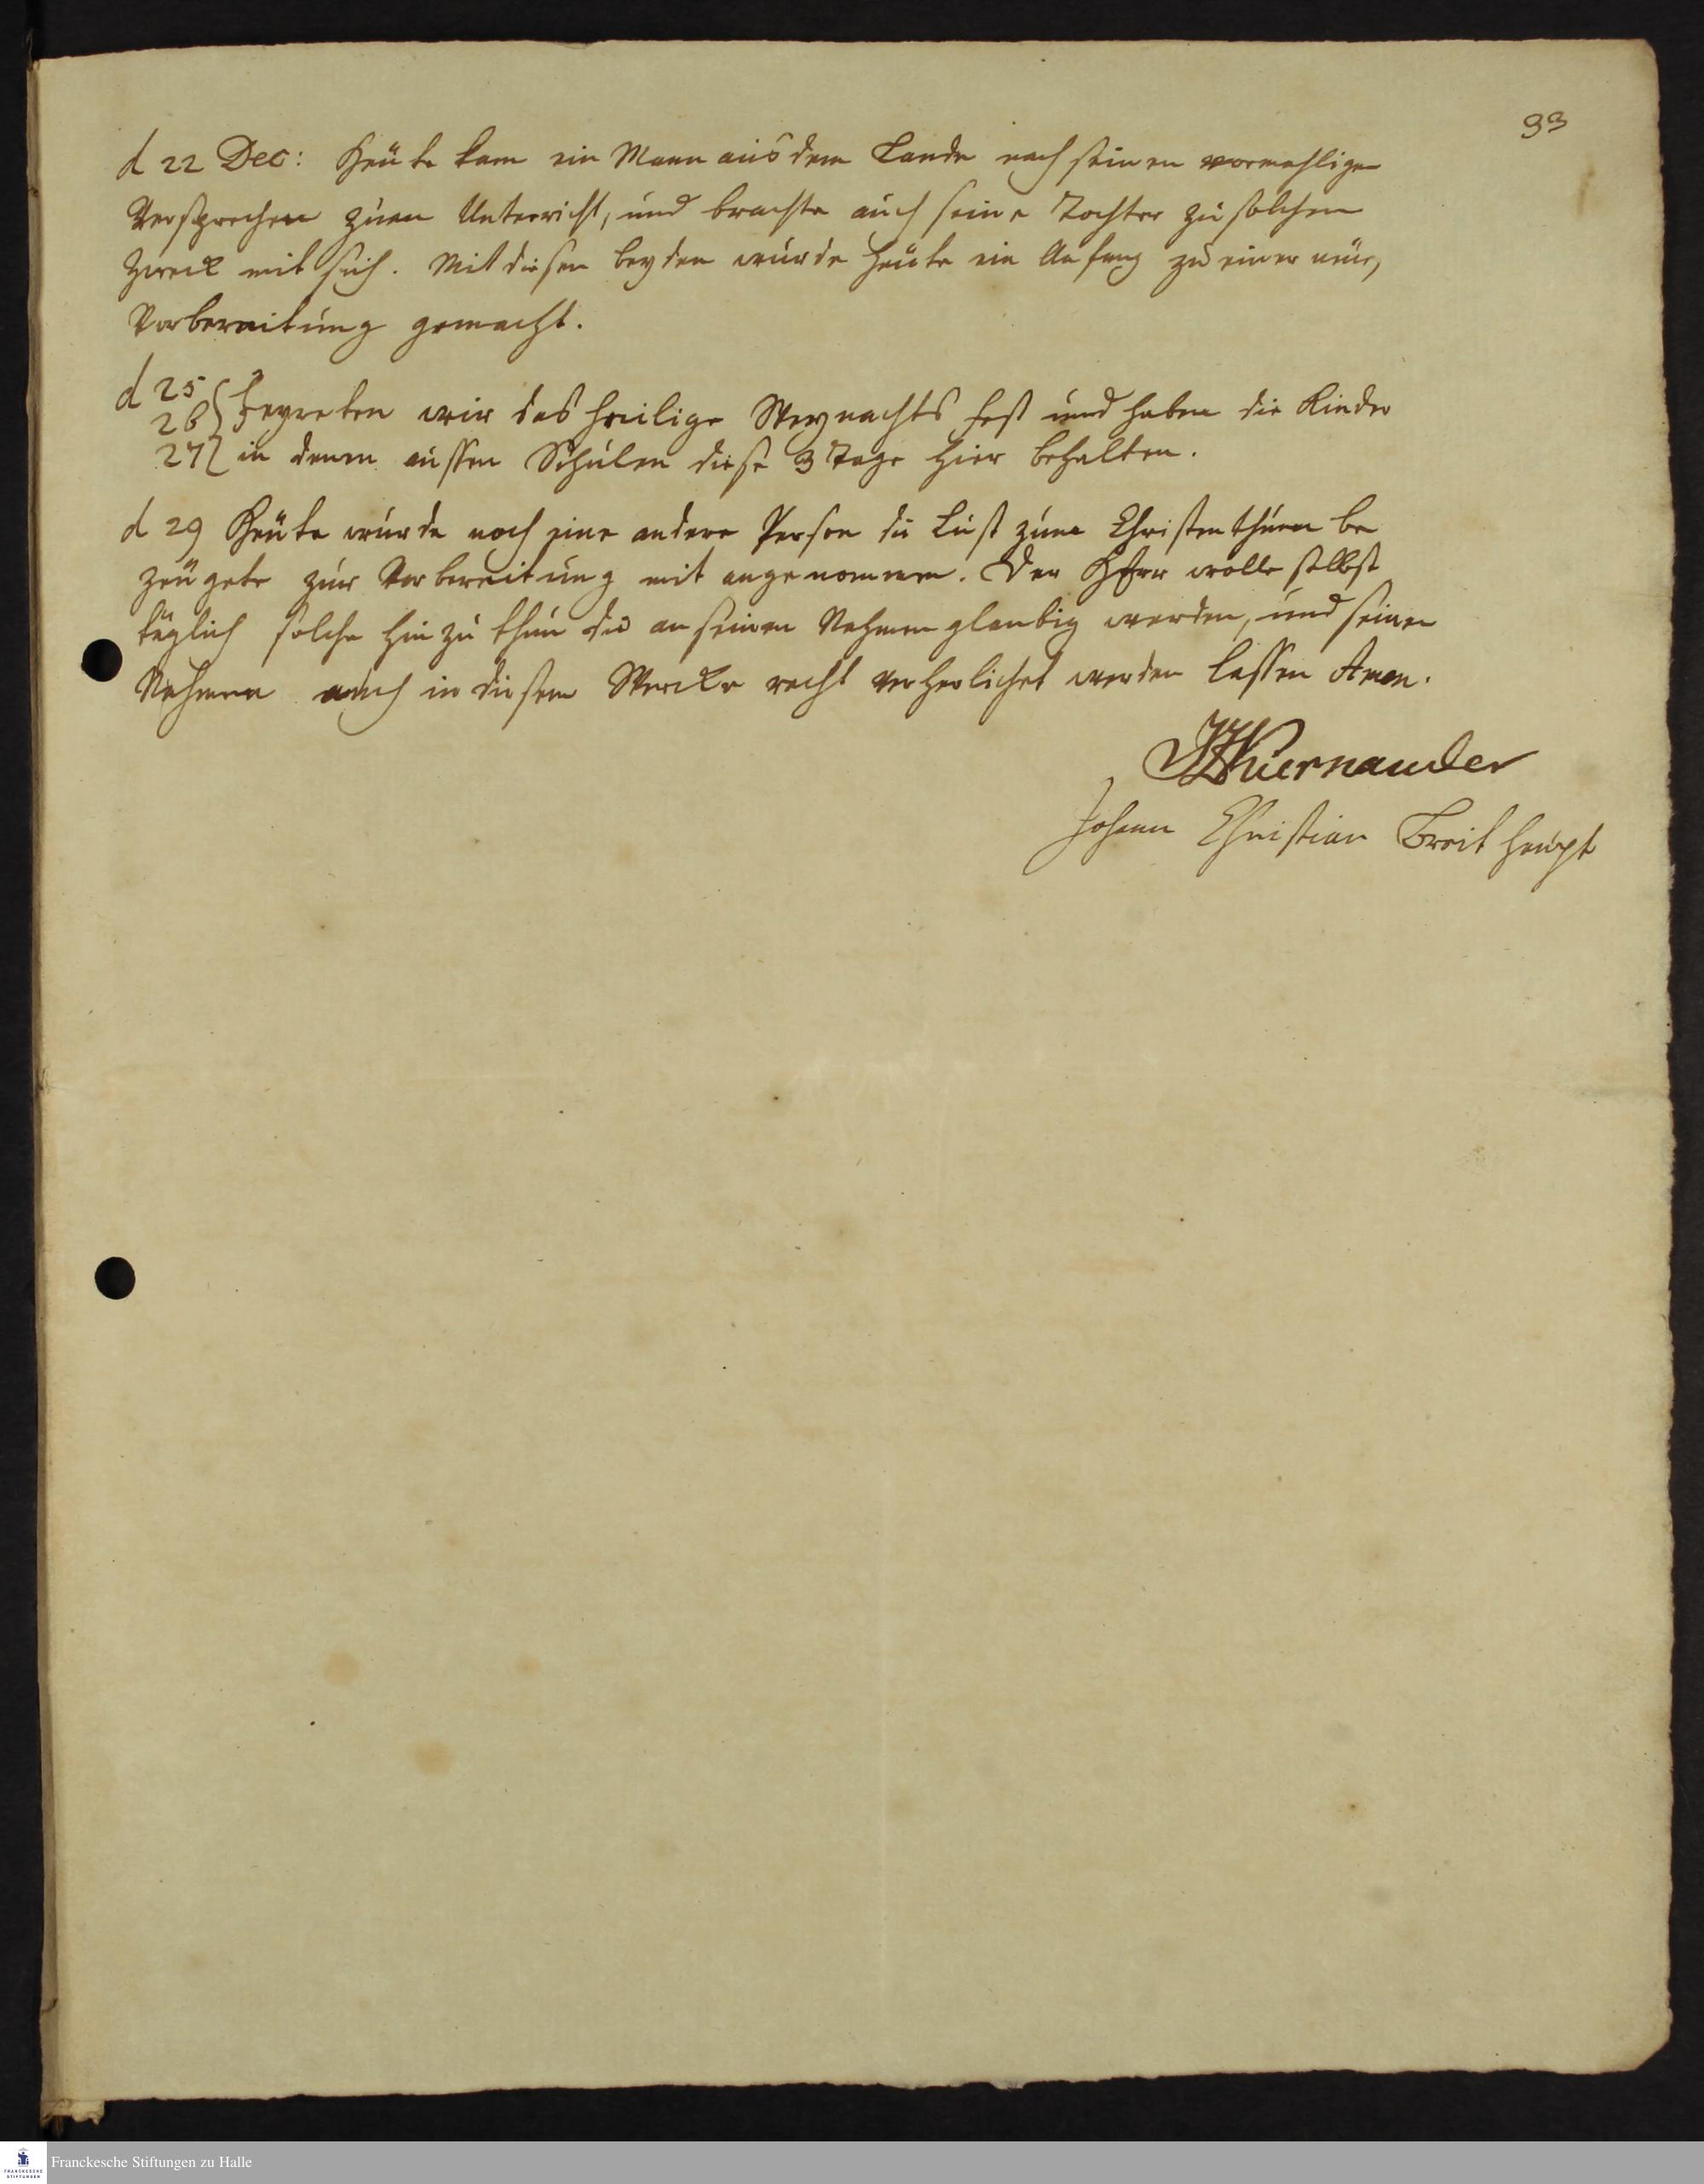 33
d 22 Dec: Heüte kam ein Mann aus dem Lande nach seinen vormahligen
Versprechen zum Unterricht, und brachte auch seine Tochter zu solchem
Zweck mit sich. Mit diesen beyden wurde heüte ein Anfang zu einer neue,
Vorbereitung gemacht.
d 25
26 Feyreten wir das heilige Weynachts fest und haben die Kinder
27 in denen aussen Schulen diese 3 Tage hier behalten.
d 29 Heüte wurde noch eine andere Person die Lust zum Christenthum be
zeügete zur Vorbereitung mit angenommen. Der HErr wolle selbst
täglich solche hinzu thun die an seinen Nahmen glaubig werden, und seinen
Nahmen auch in diesem Wercke recht verherlichet werden lassen Amen.
JZKiernander
Johann Christian Breithaupt
FRANCKESCHE
STIFTUNGEN
Franckesche Stiftungen zu Halle